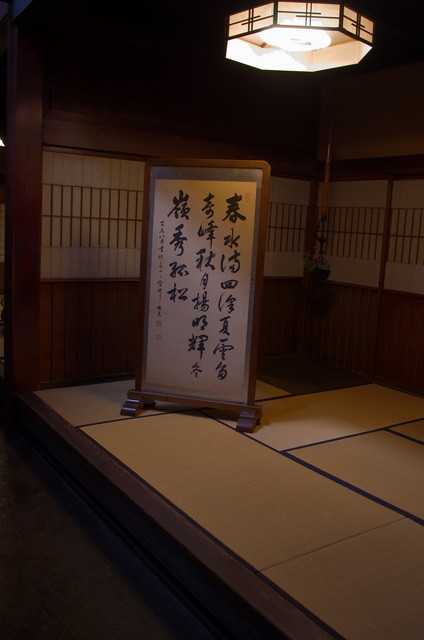 春水満四澤夏雲多
奇峰秋月揚明輝冬
嶺秀孤松